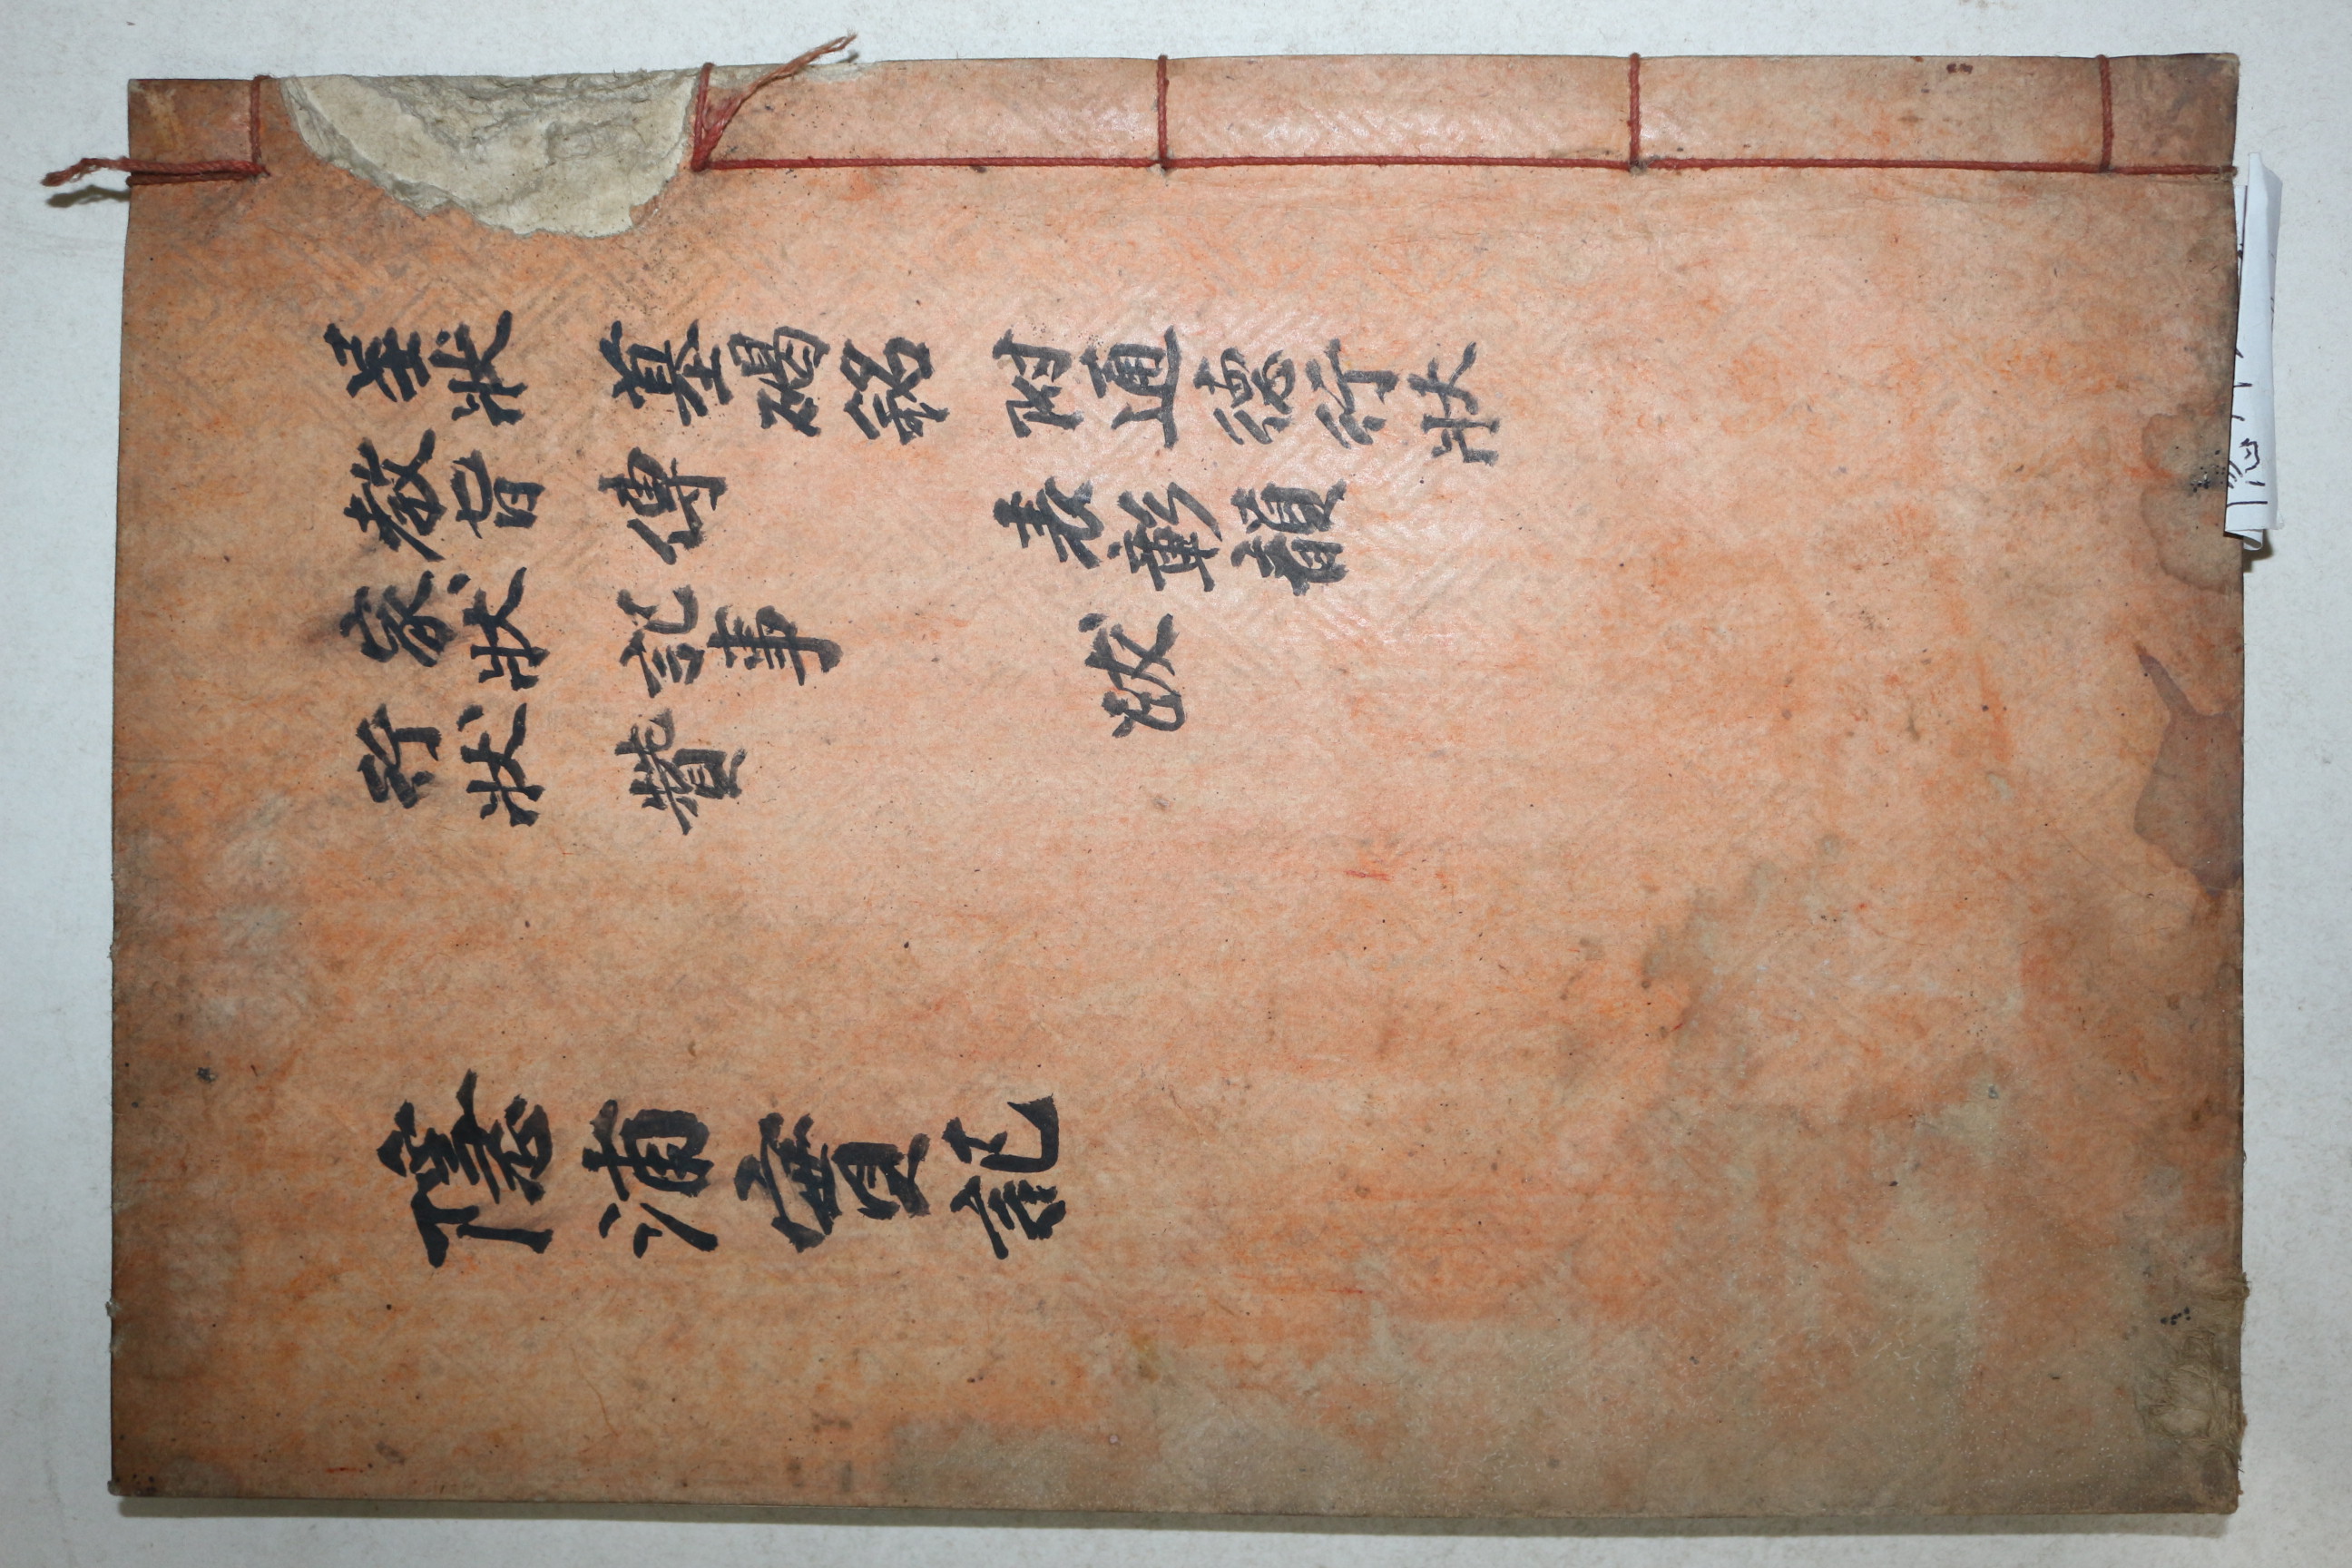 呈狀 墓碣銘 附通德行狀
敎旨 傳 表彰韻
家狀 記事 跋
行狀 贊
隱浦實記